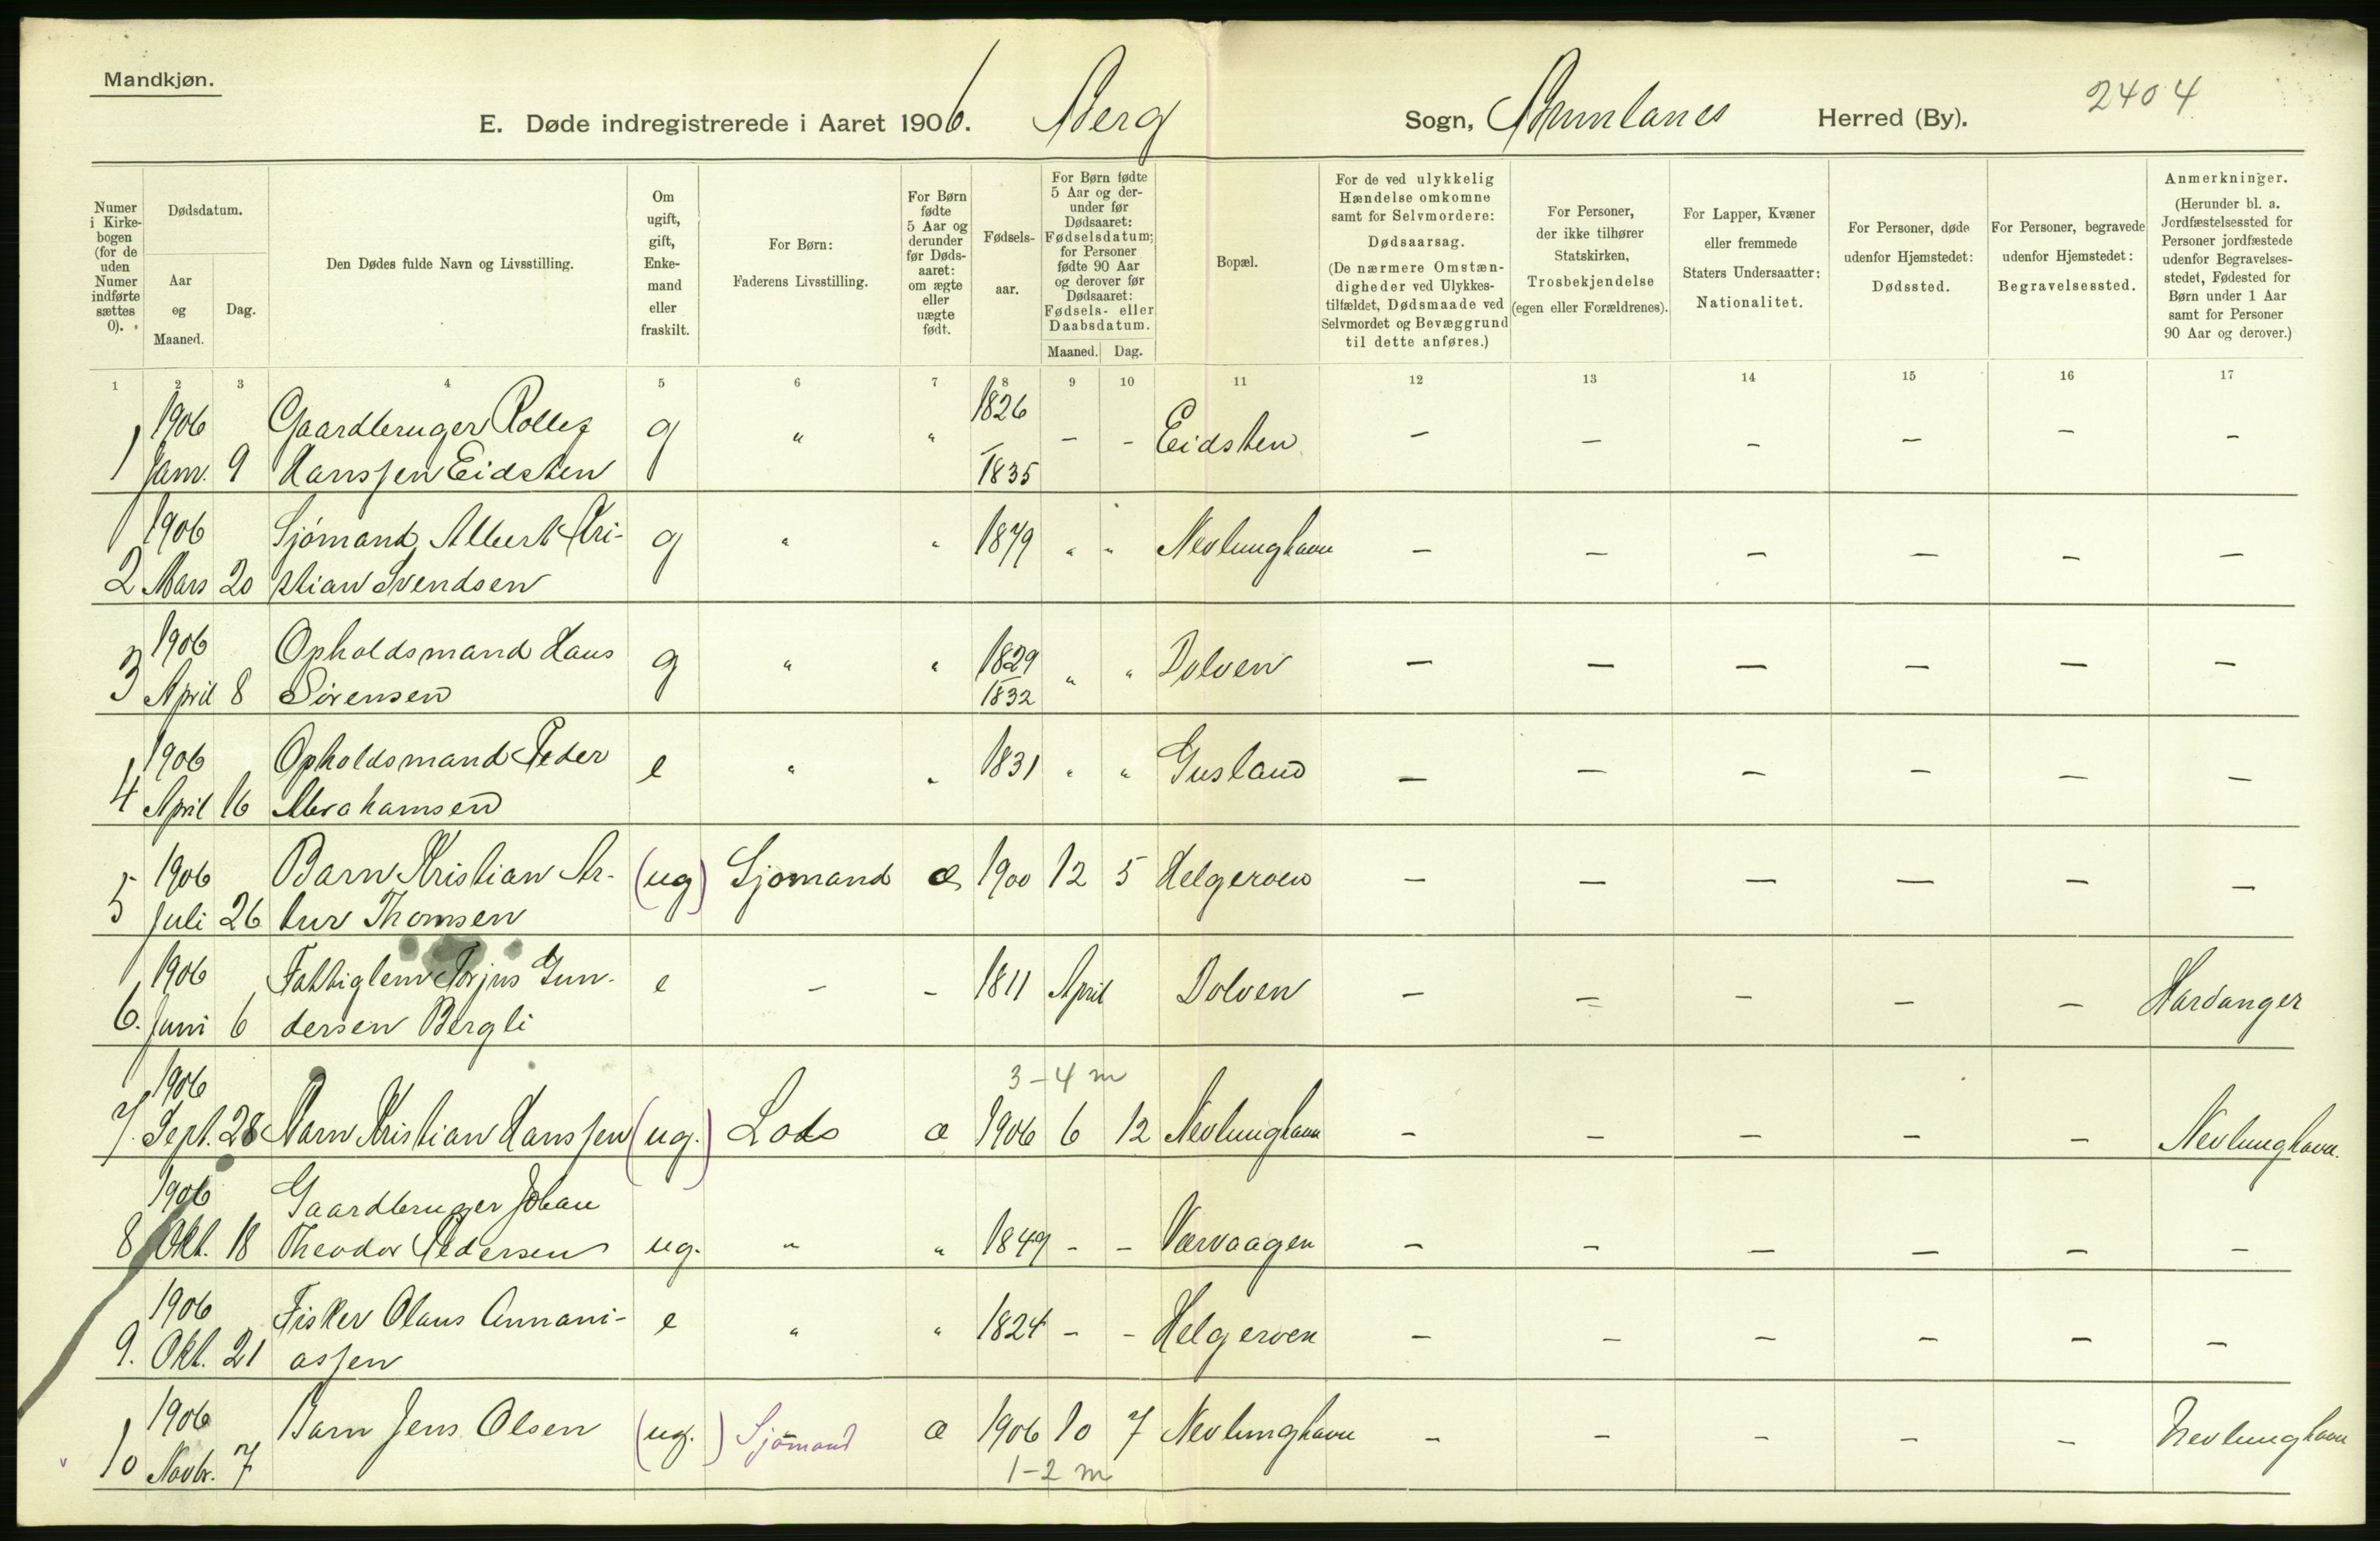 Mandkjøn.
E. Døde indregistrerede i Aaret 1906. Berg Sogn, Brunlanes Herred (By). 2404
Numer i Kirkebogen (for de uden Numer indførte sættes 0).
Dødsdatum.
Aar og Maaned.
Dag.
Den Dødes fulde Navn og Livsstilling.
Om ugift, gift, Enkemand eller fraskilt.
For Børn: Faderens Livsstilling.
For Børn fødte 5 Aar og derunder før Dødsaaret: om ægte eller uægte født.
Fødselsaar.
For Børn fødte 5 Aar og derunder før Dødsaaret: Fødselsdatum; for Personer fødte 90 Aar og derover før Dødsaaret: Fødsels- eller Daabsdatum.
Maaned. Dag.
Bopæl.
For de ved ulykkelig Hændelse omkomne samt for Selvmordere: Dødsaarsag. (De nærmere Omstændigheder ved Ulykkestilfældet, Dødsmaade ved Selvmordet og Bevæggrund til dette anføres.)
For Personer, der ikke tilhører Statskirken, Trosbekjendelse (egen eller Forældrenes).
For Lapper, Kvæner eller fremmede Staters Undersaatter: Nationalitet.
For Personer, døde udenfor Hjemstedet: Dødssted.
For Personer, begravede udenfor Hjemstedet: Begravelsessted.
Anmerkninger. (Herunder bl. a. Jordfæstelsessted for Personer jordfæstede udenfor Begravelsesstedet, Fødested for Børn under 1 Aar samt for Personer 90 Aar og derover.)
1 2 3 4 5 6 7 8 9 10 11 12 13 14 15 16 17
1906 Gaardbruger Rollef g " " 1826 – – Eidsten – – – – – –
1 Janr. 9 Hanssen Eidsten 1835
1906 Sjømand Albert Kri- g " " 1879 " " Nevlunghavn – – – – – –
2 Mars 20 stian Svendsen
1906 Opholdsmand Hans g " " 1829 " " Dolven – – – – – –
3 April 8 Sørensen 1832
1906 Opholdsmand Peder e " " 1831 " " Gusland – – – – – –
4 April 16 Abrahamsen
1906 Barn Kristian Ar- (ug) Sjømand æ 1900 12 5 Helgeroen – – – – – –
5 Juli 26 tur Thomsen
1906 Fattiglem Torjus Gun- e – – 1811 April Dolven – – – – – Hardanger
6. Juni 6 dersen Bergli
1906 3–4 m
7. Sept. 28 Barn Kristian Hanssen (ug.) Lods æ 1906 6 12 Nevlunghavn – – – – – Nevlunghavn.
1906 Gaardbruger Johan
8 Okt. 18 Theodor Pedersen ug. " " 1849 – – Værvaagen – – – – – –
1906 Fisker Olaus Annani- e " " 1824 – – Helgeroen – – – – – –
9. Okt. 21 assen
1906 Barn Jens Olsen (ug.) Sjømand æ 1906 10 7 Nevlunghavn – – – – – Nevlunghavn
10 Novbr. 7 1–2 m